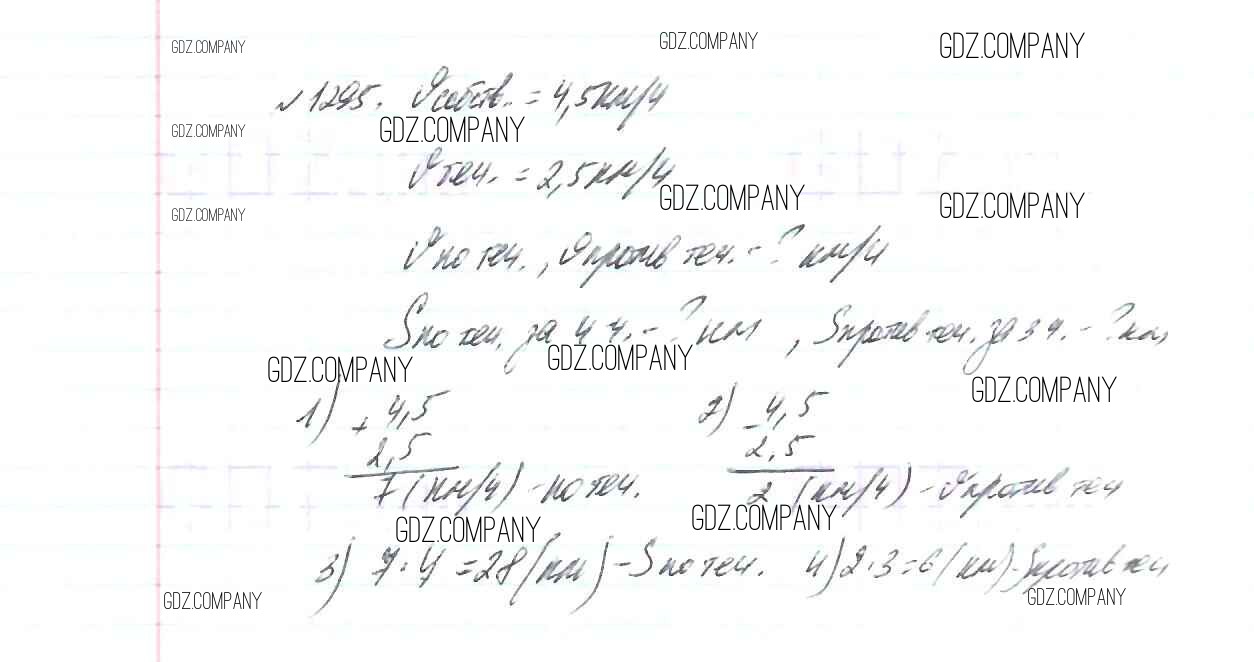 GDZ.COMPANY GDZ.COMPANY GDZ.COMPANY
№1295. Vсобств. = 4,5км/ч
GDZ.COMPANY GDZ.COMPANY
Vтеч. = 2,5км/ч
GDZ.COMPANY GDZ.COMPANY
GDZ.COMPANY
Vпо теч., Vпротив теч. - ? км/ч
Sпо теч. за 4ч. - ? км, Sпротив теч. за 3ч. - ? км
GDZ.COMPANY GDZ.COMPANY
GDZ.COMPANY
1) + 4,5 2) - 4,5
2,5 2,5
7 (км/ч) - по теч. 2 (км/ч) - Vпротив теч
GDZ.COMPANY GDZ.COMPANY
3) 7·4 = 28 (км) - Sпо теч. 4) 2·3=6 (км)-Sпротив теч
GDZ.COMPANY GDZ.COMPANY